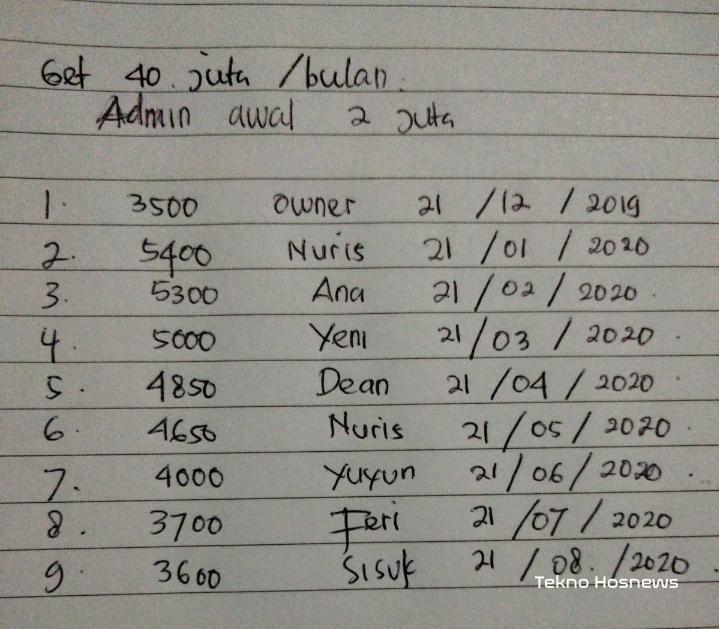 Get 40 juta /bulan.
Admin awal 2 juta
1. 3500 owner 21 /12 / 2019
2. 5400 Nuris 21 /01 / 2020
3. 5300 Ana 21 / 02 / 2020.
4. 5000 Yeni 21/03 / 2020.
5. 4850 Dean 21 /04 / 2020.
6. 4650 Nuris 21 /05 / 2020.
7. 4000 Yuyun 21 / 06 / 2020.
8. 3700 Feri 21 /07 / 2020
9. 3600 Sisuk 21 / 08. /2020.
Tekno Hosnews